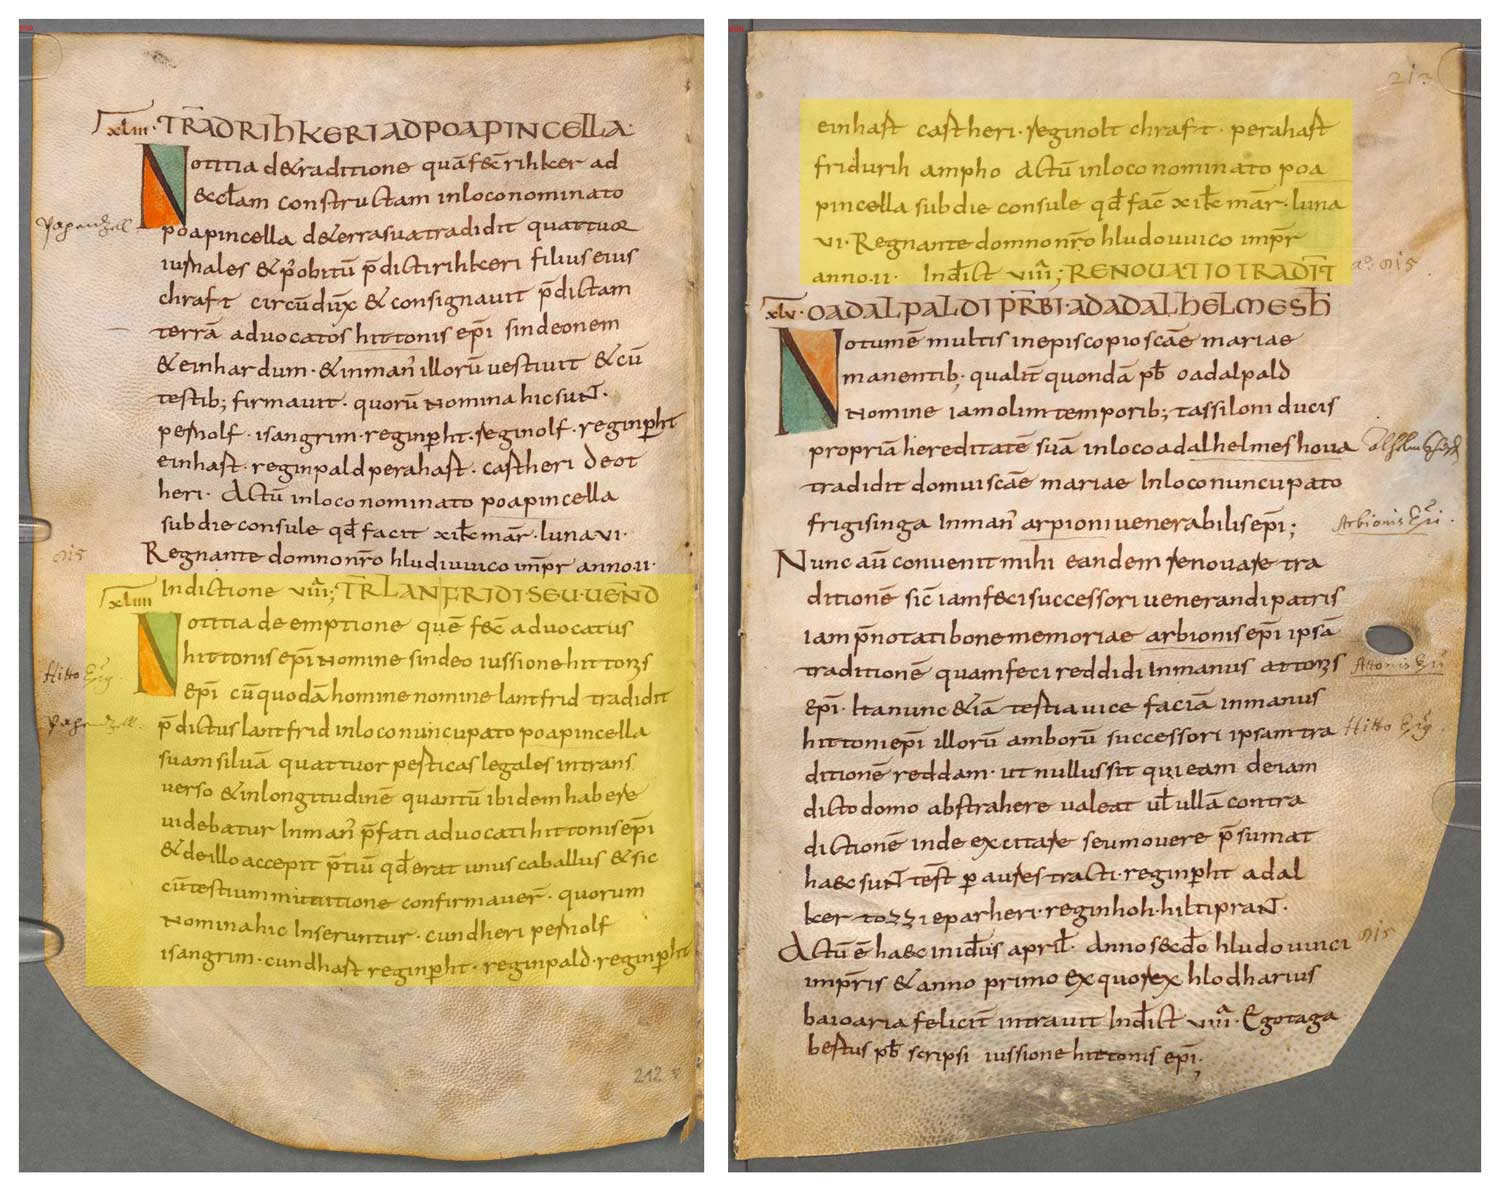 xliii. TRAD RIHKERI AD POAPINCELLA.
Notitia de traditione quā fec̄ rihker ad
ecclam constructam in loco nominato
poapincella de terra sua tradidit quattuor
iurnales & p obitū p̄dicti rihkeri filius eius
chraft circūdux & consignauit p̄dictam
terrā aduocatos hittonis ep̄i sindeonem
& einhardum · & inman̄ illorū uestiuit & cū
testib; firmauit · quorū nomina hic sunt·
pernolf · isangrim · reginp̄ht · reginolf · reginp̄ht
einhart · reginpald perahart · cartheri deot
heri · Actū in loco nominato poapincella
sub die consule qd̄ facit xi kł mar̄ · luna vi ·
Regnante domno nr̄o hludiuuico imp̄r anno ii ·
Indictione viiii; TR LANTFRIDI · SEU · UEND
xliiii
Notitia de emptione quē fec̄ aduocatus
hittonis ep̄i nomine sindeo iussione hittonis
ep̄i cū quodā homine nomine lantfrid tradidit
p̄dictus lantfrid in loco nuncupato poapincella
suam siluā quattuor perticas legales in trans
uerso & in longitudinē quantū ibidem habere
uidebatur In man̄ p̄fati aduocati hittonis ep̄i
& de illo accepit p̄tiū qd̄ erat unus caballus & sic
cū testium mittitione confirmauer̄ · quorum
nomina hic Inseruntur · cundheri pernolf
isangrim · cundhart reginp̄ht · reginpald · reginp̄ht
212
Hitto
213
einhart cartheri · reginolt chraft · perahart
fridurih ampho Actū in loco nominato poa
pincella sub die consule qd̄ fac̄ xi kł mar̄ · luna
vi · Regnante domno nr̄o hludouuico imp̄r
anno · ii · Indict viiii; RENOUATIO TRADIT
xlv · OADALPALDI PR̄BI · AD ADALHELMESH
Notum ē multis in episcopio scāe mariae
manentib; qualit̄ quondā pb̄ oadalpald
nomine iam olim temporib; tassiloni ducis
propriā hereditatē suā in loco adalhelmeshoua
tradidit domui scāe mariae In loco nuncupato
frigisinga In man̄ arpioni uenerabilis ep̄i;
Arbionis
Nunc aū conuenit mihi eandem renouare tra
ditionē sic̄ iam feci successori uenerandi patris
iam p̄notati bone memoriae arbionis ep̄i ipsā
traditionē quam feci reddidi In manus attonis
Attonis
ep̄i · Ita nunc & iā testia uice faciā in manus
hittoni ep̄i illorū amborū successori ipsam tra
Hitto
ditionē reddam · ut nullus sit qui eam de iam
dicto domo abstrahere ualeat uł ullā contra
dictionē inde excitare seu mouere p̄sumat
haec sunt test̄ p aures tracti · reginp̄ht adal
ker tozzi eparheri · reginhoh · hiltiprant·
Actū ē haec in idus april̄ · Anno secd̄o hludouuici
imp̄ris & anno primo ex quo rex hlodharius
baioaria felicit̄ intrauit Indict̄ viiii · Ego taga
bertus pb̄ scripsi iussione hittonis ep̄i ·